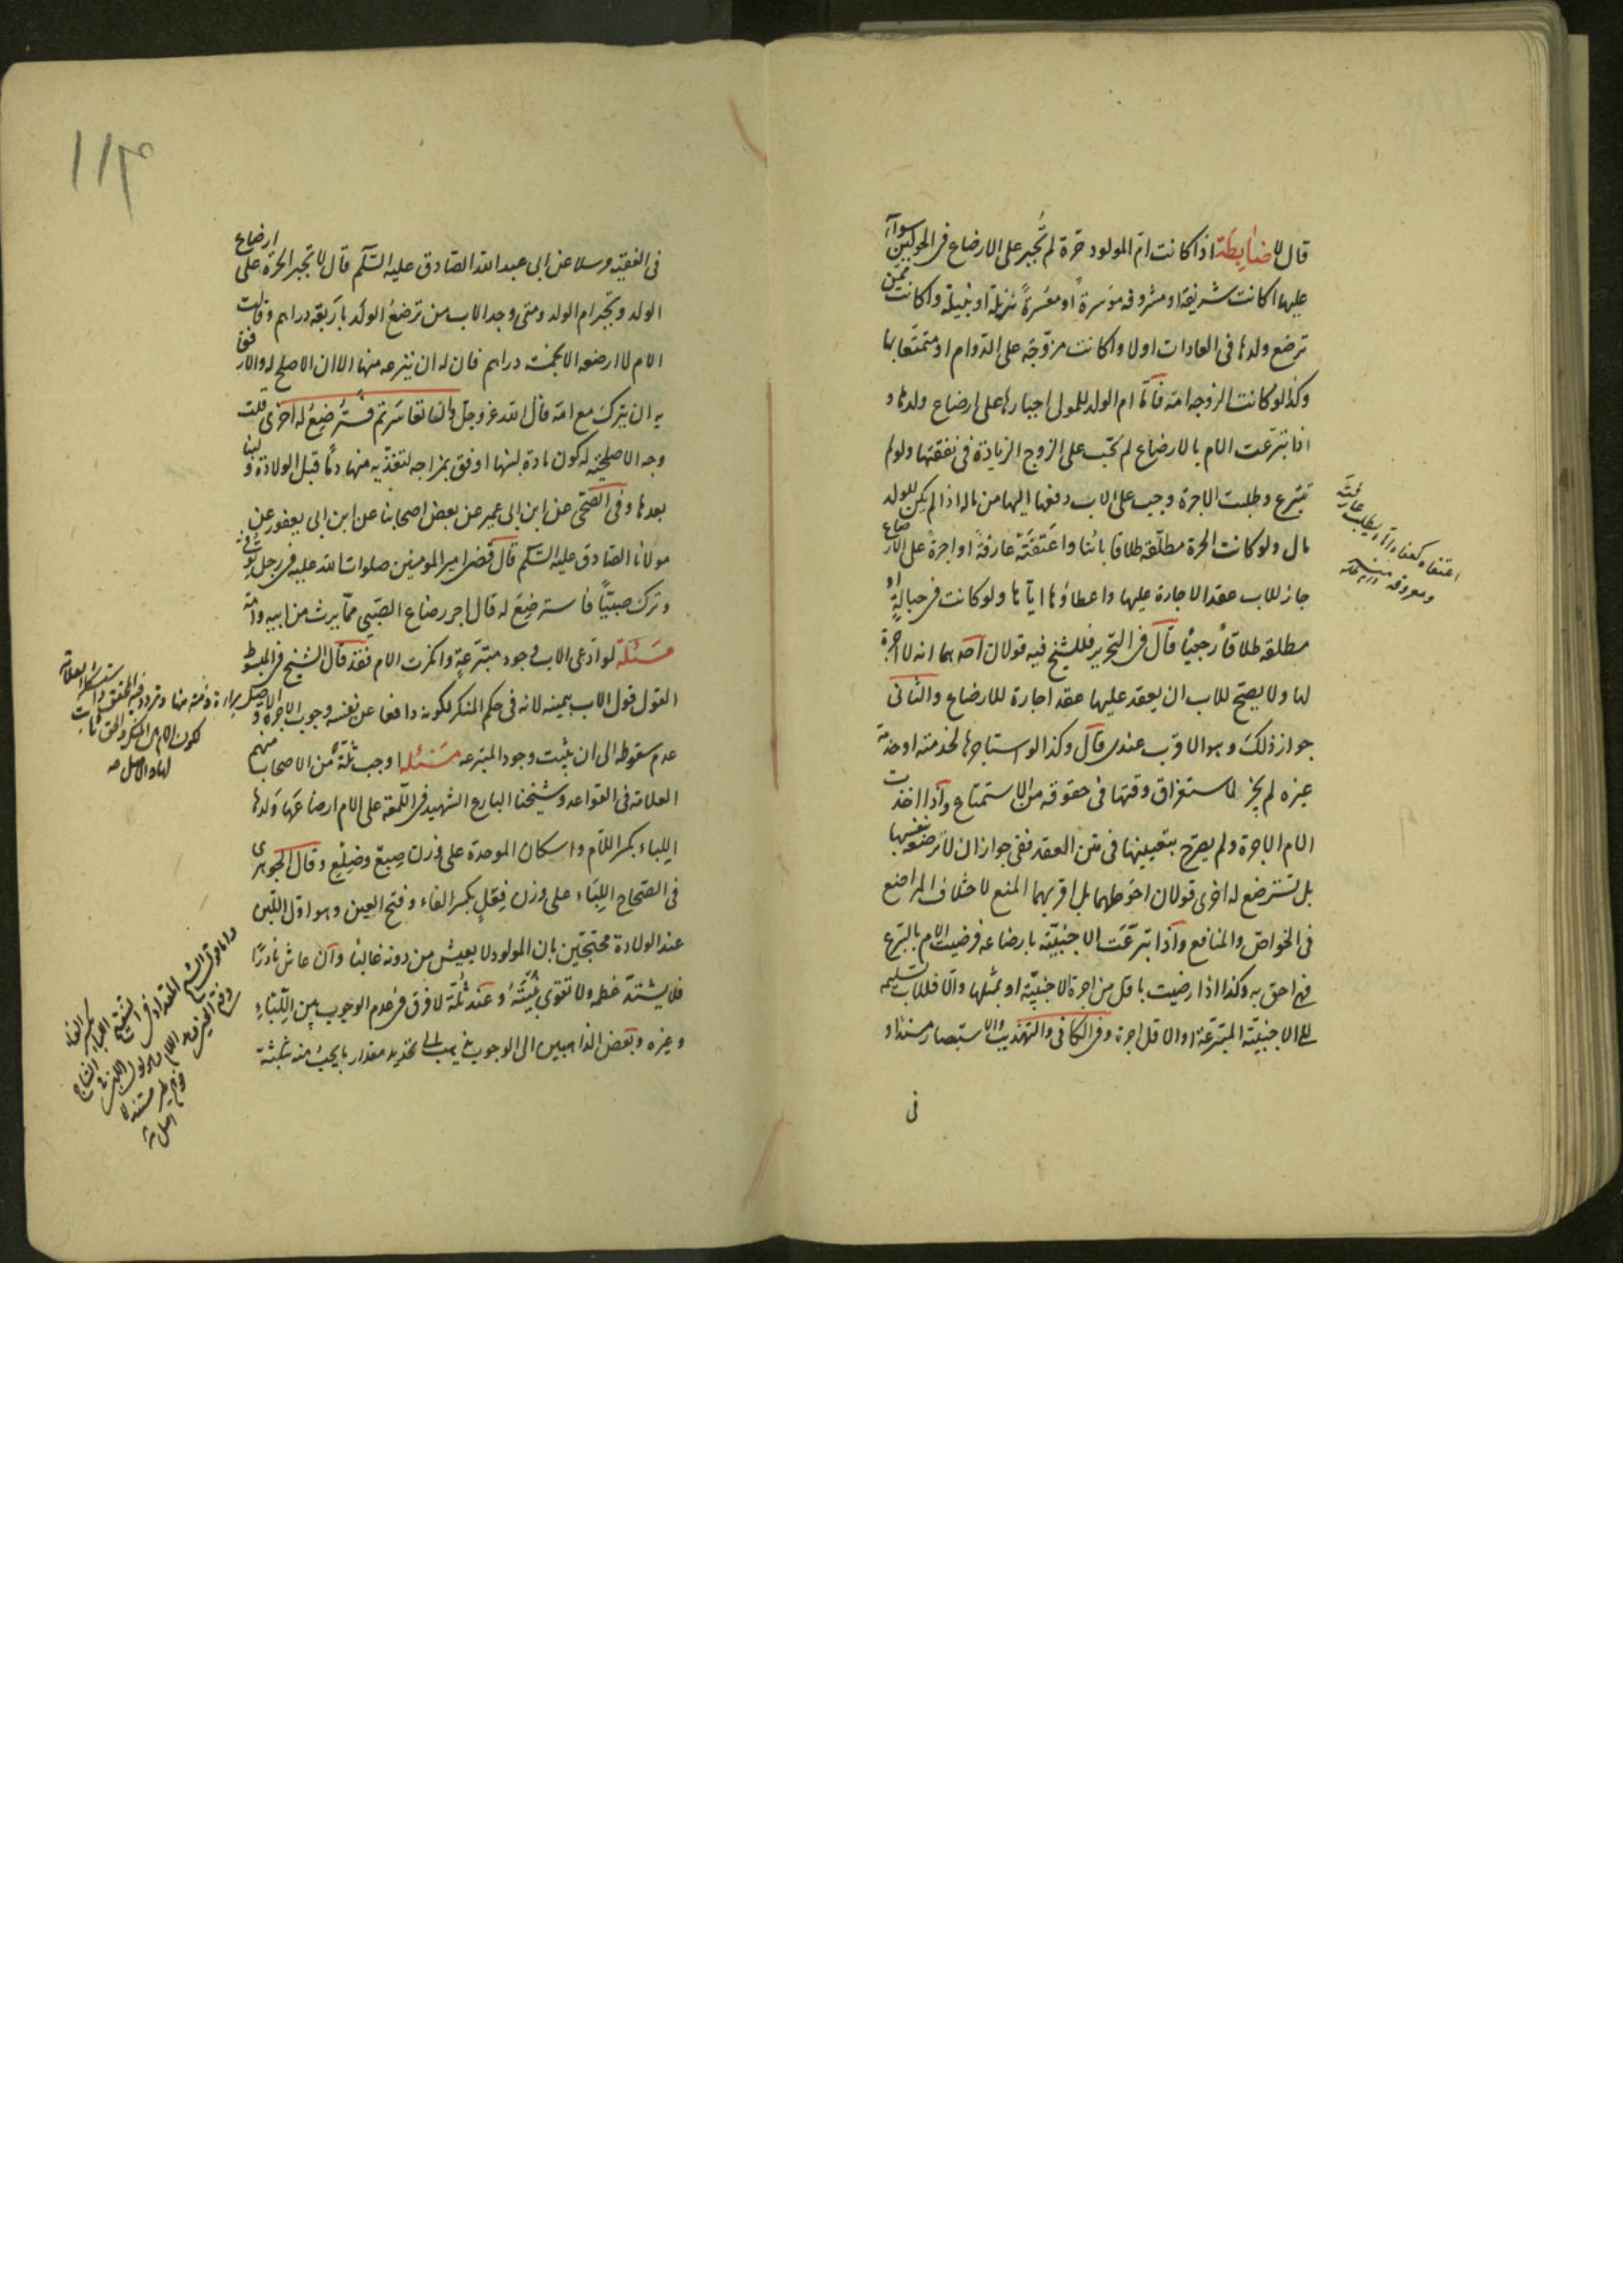 قال لا ضابطة اذا كانت ام المولود حرة لم تجبر على الارضاع فى الحولين سواء
عليها اكانت شريفة او مشروفه موسرة او معسرة نزيلة او نبيلة واكانت ممن
ترضع ولدها فى العادات اولا واكانت مزوجة على الدوام او متمتعا بها
وكذا لو كانت الزوجه امة فاما ام الولد للمولى اجبارها على ارضاع ولدها و
اذا تبرعت الام بالارضاع لم تجب على الزوج الزيادة فى نفقتها ولو لم
تتبرع وطلبت الاجرة وجب على الاب دفعها اليها من ماله اذا لم يكن للولد
مال ولو كانت الحرة مطلقة طلاقا بائنا واعتفته عارفة او اجرة على الارضاع
جاز للاب عقد الاجارة عليها واعطاؤها اياها ولو كانت فى حباله او
مطلقة طلاقا رجعيا قال فى التحرير فللشيخ فيه قولان احدهما انه لا اجرة
لها ولا يصح للاب ان يعقد عليها عقد اجارة للارضاع والثانى
جواز ذلك وهو الاقرب عندى قال وكذا لو استاجرها لخدمته او خدمة
غيره لم يجز لاستغراق وقتها فى حقوقه من الاستمتاع واذا اخذت
الام الاجرة ولم يصرح بتعيينها فى متن العقد ففى جواز ان لا ترضعه بنفسها
بل تسترضع له اخرى قولان احوطهما بل اقربهما المنع لاختلاف المراضع
فى الخواص والمنافع واذا تبرعت الاجنبية بارضاعه فرضيت الام بالتبرع
فهى احق به وكذا اذا رضيت باقل من اجرة الاجنبية او بمثلها والا فللاب تسليمه
الى الاجنبية المتبرعة او الاقل اجرة وفى الكافى والتهذيب والاستبصار مسندا و
فى
اعتفاه كعفاه اتاه يطلب عارفته
ومعروفه منه
فى الفقيه مرسلا عن ابى عبد الله الصادق عليه السلم قال لا تجبر الحرة على ارضاع
الولد وتجبر ام الولد ومتى وجد الاب من ترضع الولد باربعة دراهم وقالت
الام لا ارضعه الا بخمسة دراهم فان له ان ينزعه منها الا ان الاصلح له والارفق
به ان يترك مع امه قال الله عز وجل وان تعاسرتم فسترضع له اخرى قلت
وجه الاصلحية كون مادة لبنها اوفق بمزاجه لتغذيه منها دما قبل الولادة و لبنا
بعدها وفى الصحى عن ابن ابى عمير عن بعض اصحابنا عن ابن ابى يعفور عن
مولانا الصادق عليه السلم قال قضى امير المومنين صلوات الله عليه فى رجل توفى
وترك صبيا فاسترضع له قال اجر رضاع الصبى مما يرث من ابيه وامه
مسئلة لو ادعى الاب وجود متبرعة وانكرت الام فقد قال الشيخ فى المبسوط
القول قول الاب بيمينه لانه فى حكم المنكر لكونه دافعا عن نفسه وجوب الاجرة و
عدم سقوطه الى ان يثبت وجود المتبرعه مسئله اوجب ثلة من الاصحاب منهم
العلامة فى القواعد وشيخنا البارع الشهيد فى اللمعة على الام ارضاعها ولدها
اللباء بكسر اللام واسكان الموحدة على وزن صبغ وضلع وقال الجوهرى
فى الصحاح اللباء على وزن فعل بكسر الفاء وفتح العين وهو اول اللبن
عند الولادة محتجين بان المولود لا يعيش من دونه غالبا وان عاش نادرا
فلا يشتد عظمه ولا تقوى بنيته وعند ثلة لا فرق فى عدم الوجوب بين اللباء
وغيره وبعض الذاهبين الى الوجوب تحديد مقدار ما يجب منه بثلثة
الاصل براءة ذمته منها وتردد فيه المحقق